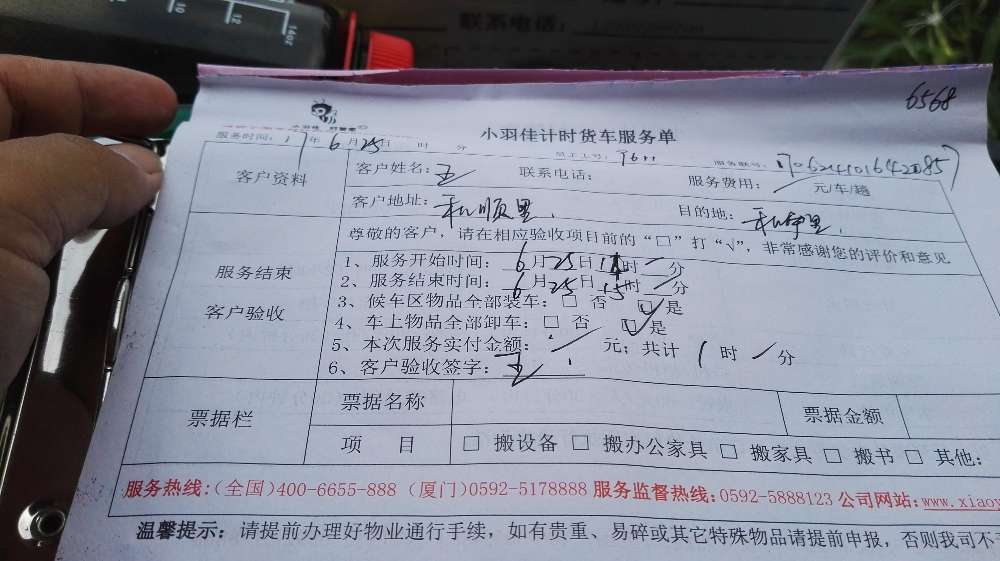 联系电话:
6568
小羽佳计时货车服务单
服务时间: 17年6月25日 时 分 服务账号:
客户资料 客户姓名: 王 联系电话: 服务费用: 元/车/趟
客户地址: 和顺里 目的地: 和静里
尊敬的客户，请在相应验收项目前的“□”打“√”，非常感谢您的评价和意见
服务结束
客户验收
1、服务开始时间: 6月25日 时 分
2、服务结束时间: 6月25日15时 分
3、候车区物品全部装车: □ 否 ☑是
4、车上物品全部卸车: □ 否 ☑是
5、本次服务实付金额: 元; 共计 1 时 分
6、客户验收签字: 王
票据栏 票据名称 票据金额
项 目 □ 搬设备 □ 搬办公家具 □ 搬家具 □ 搬书 □ 其他:
服务热线:(全国)400-6655-888 (厦门)0592-5178888 服务监督热线:0592-5888123 公司网站:www.xiaoy
温馨提示: 请提前办理好物业通行手续，如有贵重、易碎或其它特殊物品请提前申报，否则我司不